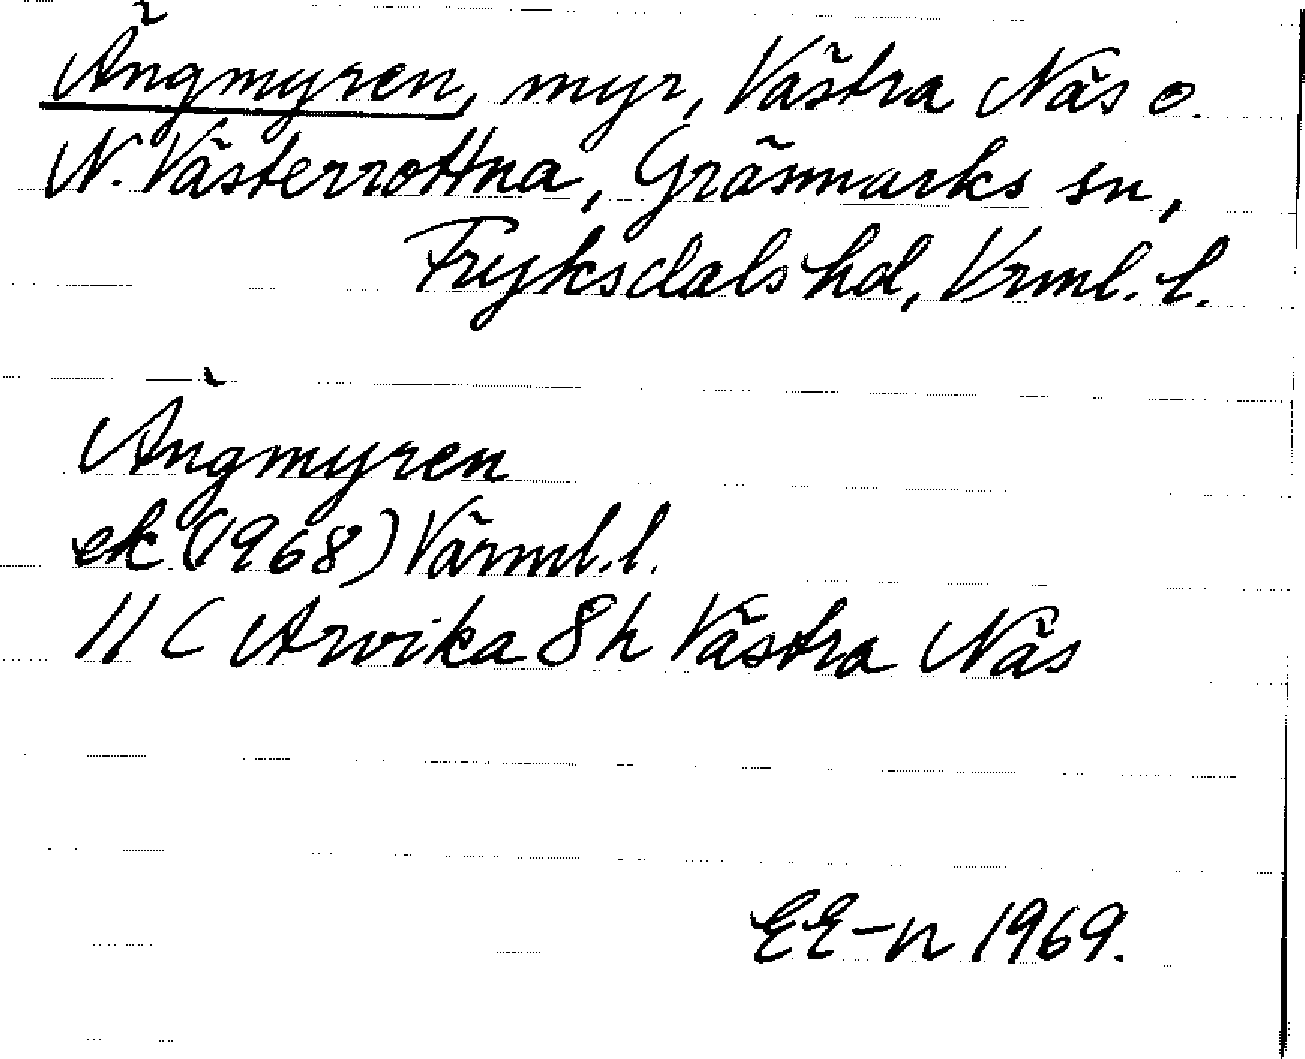 Ängmyren, myr, Västra Näs o.
N. Västerrottna, Gräsmarks sn,
Fryksdals hd, Vrml. l.
Ängmyren
ek (1968) Värml. l.
11 C Arvika 8h Västra Näs
EE-n 1969.